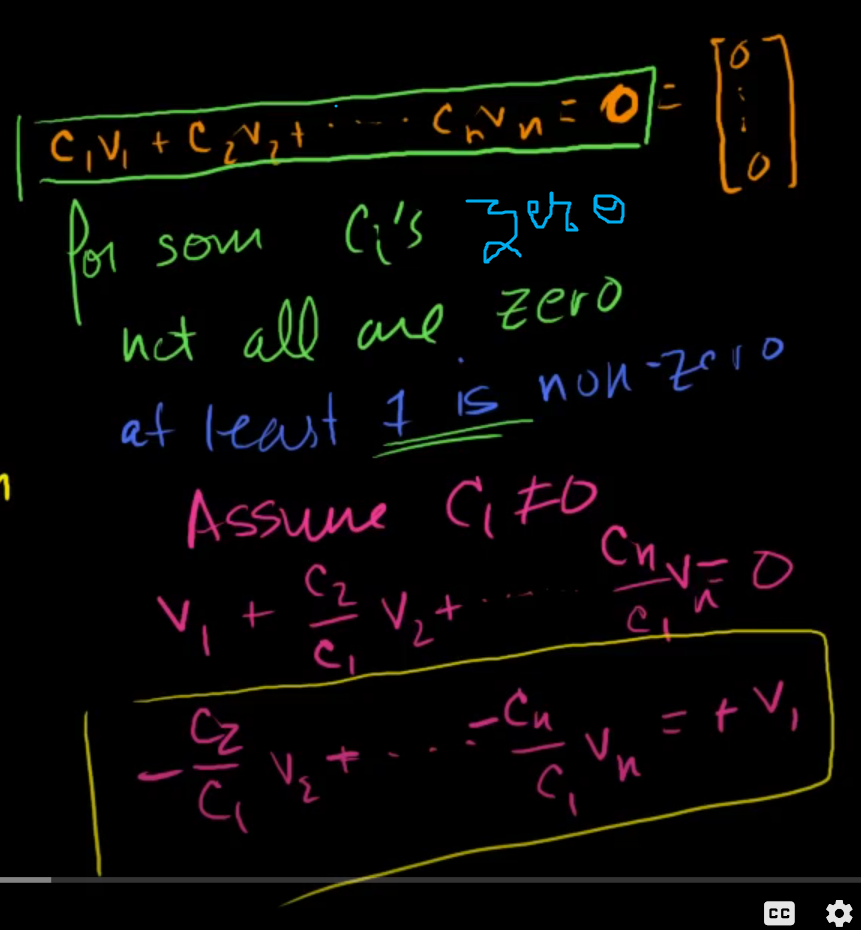 C₁V₁ + C₂V₂ + ...... CₙVₙ = 0 = [0 ⋮ 0]
for som Cᵢ's zero
not all are zero
at least 1 is non-zero
Assume C₁ ≠ 0
V₁ + C₂/C₁ V₂ + ...... Cₙ/C₁ Vₙ = 0
-C₂/C₁ V₂ + .... -Cₙ/C₁ Vₙ = + V₁
CC